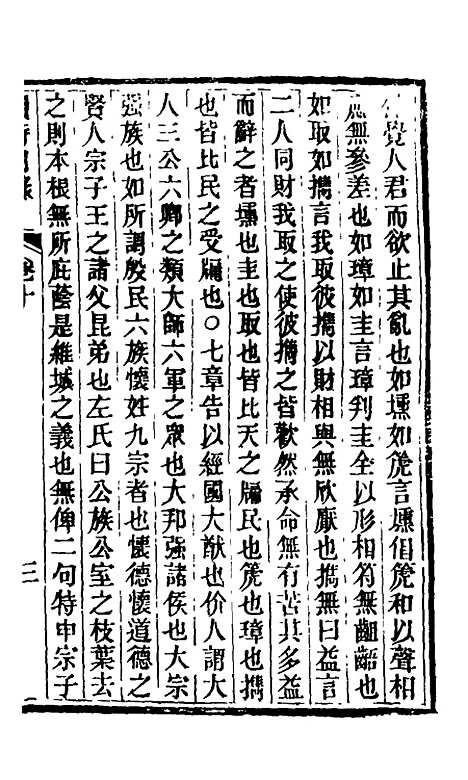 覺人君而欲止其亂也如壎如箎言壎倡箎和以聲相
應無參差也如璋如圭言璋判圭全以形相符無齟齬也
如取如攜言我取彼攜以財相與無欣厭也攜無曰益言
二人同財我取之使彼攜之皆歡然承命無有苦其多益
而辭之者壎也圭也取也皆比天之牖民也箎也璋也攜
也皆比民之受牖也○七章告以經國大猷也价人謂大
人三公六卿之類大師六軍之眾也大邦强諸侯也大宗
强族也如所謂殷民六族懷姓九宗者也懷德懷道德之
賢人宗子王之諸父昆弟也左氏曰公族公室之枝葉去
之則本根無所庇蔭是維城之義也無俾二句特申宗子
卷十
三